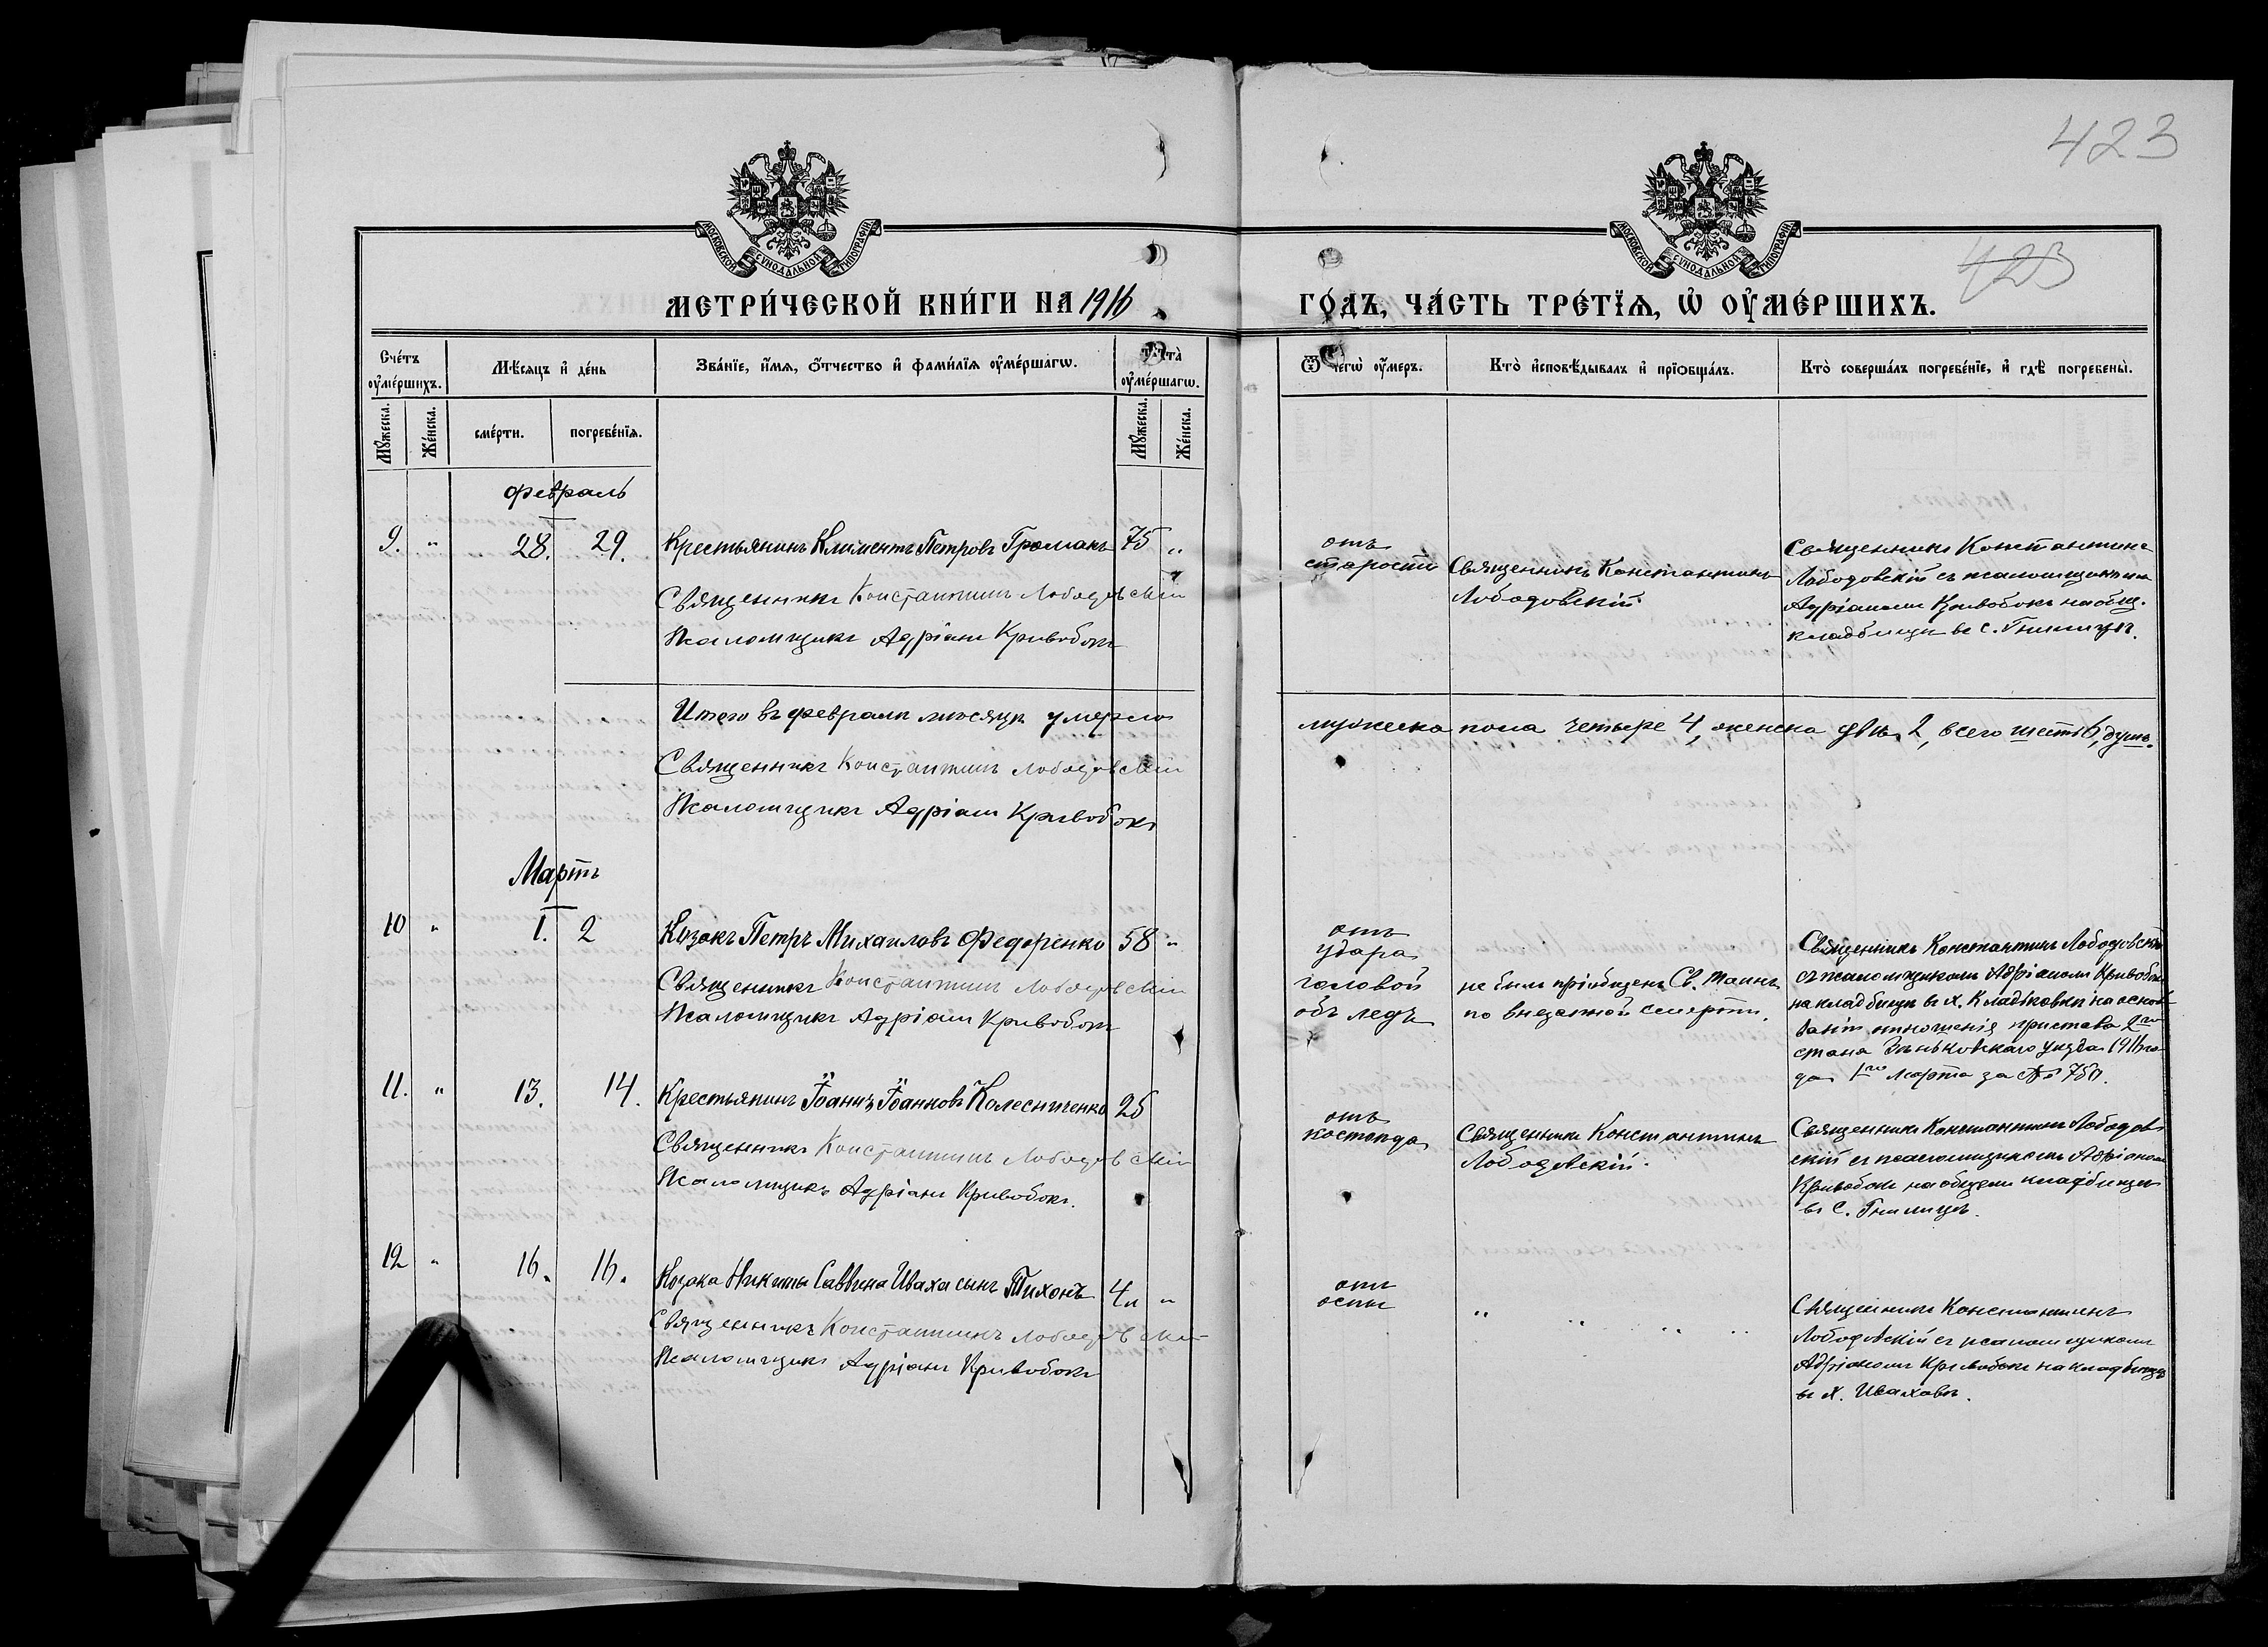 423
МОСКОВСКОЙ СѴНОДАЛЬНОЙ ТИПОГРАФІИ
МОСКОВСКОЙ СѴНОДАЛЬНОЙ ТИПОГРАФІИ
423
МЕТРИ́ЧЕСКОЙ КНИ́ГИ НА 1916
ГО́ДЪ, ЧА́СТЬ ТРЕ́ТЇѦ, Ѡ҆ ОУ҆МЕ́РШИХЪ.
Сче́тъ оу҆ме́ршихъ.
Мѣ́сѧцъ и҆ де́нь
Зва́нїе, и҆́мѧ, ѻ҆́тчество и҆ фами́лїѧ оу҆ме́ршагѡ.
Лѣ́та оу҆ме́ршагѡ.
Ѿ чегѡ̀ оу҆́меръ.
Кто̀ и҆сповѣ́дывалъ и҆ прїѡбща́лъ.
Кто̀ соверша́лъ погребе́нїе, и҆ гдѣ̀ погребены̀.
Мꙋ́жеска.
Же́нска.
сме́рти.
погребе́нїѧ.
Мꙋ́жеска.
Же́нска.
Февраль
9. " 28. 29. Крестьянинъ Климентъ Петровъ Громакъ 75 "
Священникъ Константинъ Лободовскій
Псаломщикъ Адріанъ Кривобокъ
отъ
старости
Священникъ Константинъ
Лободовскій
Священникъ Константинъ
Лободовскій съ псаломщикомъ
Адріаномъ Кривобокъ на общ.
кладбищѣ въ с. Гнилицѣ.
Итого въ февралѣ мѣсяцѣ умерло
мужеска пола четыре 4, женска двѣ 2, всего шесть 6, душъ.
Священникъ Константинъ Лободовскій
Псаломщикъ Адріанъ Кривобокъ
Мартъ
10 " 1. 2 Козакъ Петръ Михаиловъ Федоренко 58 "
Священникъ Константинъ Лободовскій
Псаломщикъ Адріанъ Кривобокъ
отъ
удара
головой
объ ледъ
не былъ пріобщенъ Св. Таинъ
по внезапной смерти.
Священникъ Константинъ Лободовскій
съ псаломщикомъ Адріаномъ Кривобокъ
на кладбищѣ въ х. Кладьковки на осно-
ваніи отношенія пристава 2го
стана Зѣньковскаго уѣзда 1916 го-
да 1го Марта за №
11. " 13. 14. Крестьянинъ Іоаннъ Іоанновъ Колесниченко 25
Священникъ Константинъ Лободовскій
Псаломщикъ Адріанъ Кривобокъ.
отъ
костоѣда
Священникъ Константинъ
Лободовскій.
Священникъ Константинъ Лободов-
скій съ псаломщикомъ Адріаномъ
Кривобокъ на общемъ кладбищѣ
въ С. Гнилицѣ.
12 " 16. 16. Козака Никиты Саввина Иваха сынъ Тихонъ 4 "
Священникъ Константинъ Лободовскій
Псаломщикъ Адріанъ Кривобокъ
отъ
оспы
" " " "
Священникъ Константинъ
Лободовскій съ псаломщикомъ
Адріаномъ Кривобокъ на кладбищѣ
въ х. Иваховъ.